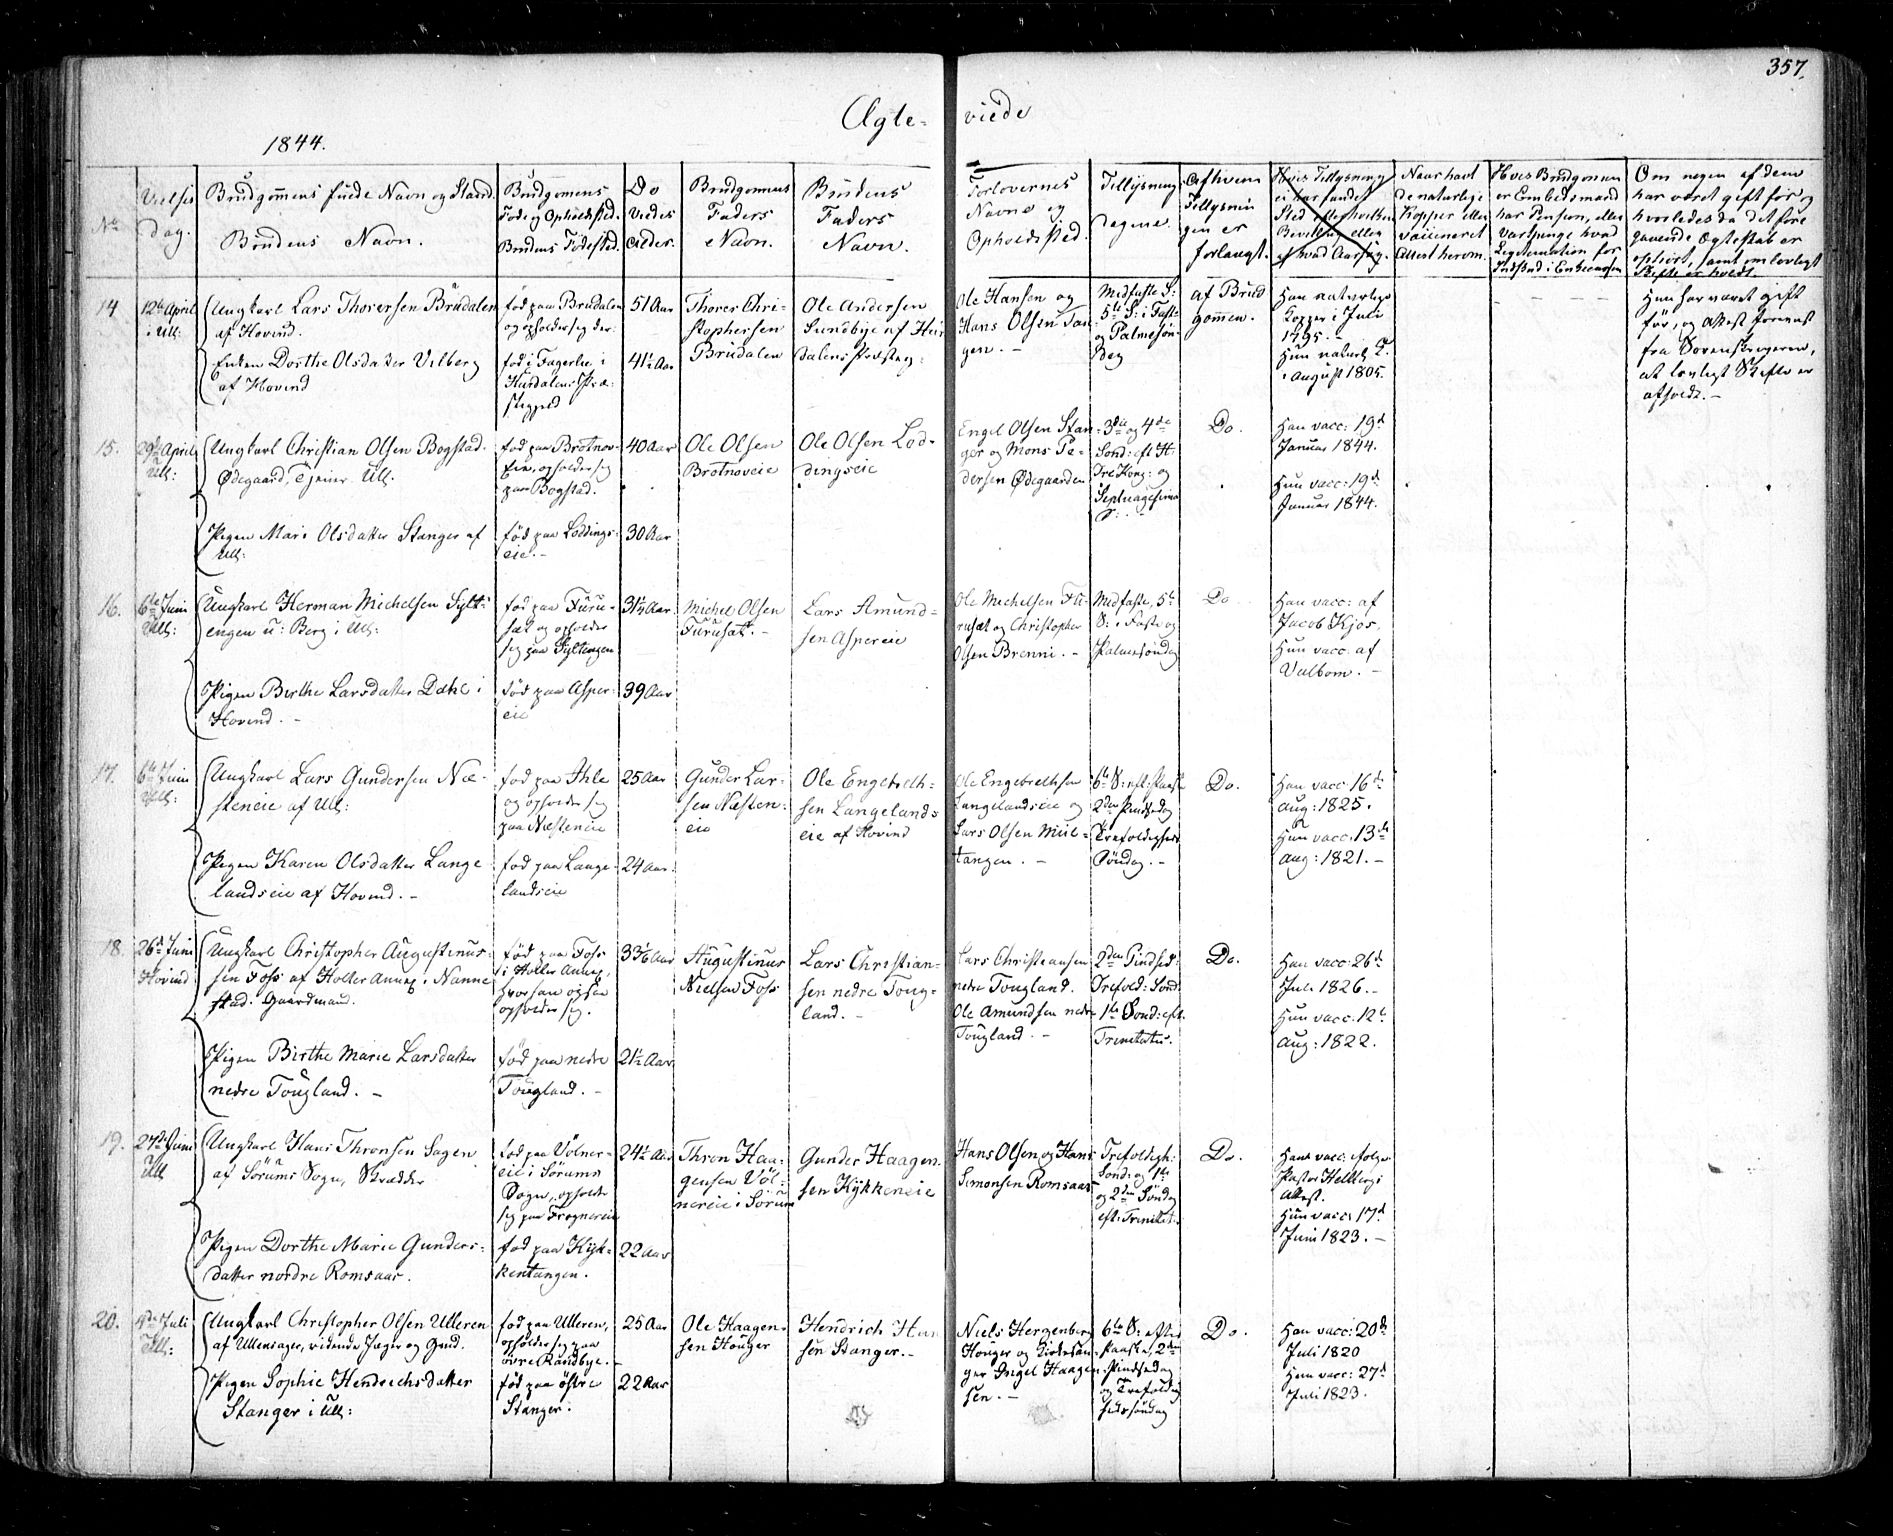 357.
Ægte- viede
1844.
No
Vielses Dag.
Brudgommens fulde Navn og Stand.
Brudens Navn.
Brudgomens
Føde og Opholdssted.
Brudens Fødested.
Do
Viedes
Alder.
Brudgommens
Faders
Navn.
Brudens
Faders
Navn.
Forlovernes
Navne og
Opholdssted.
Tillysnings
Dagene.
Af hvem
Tillysnin
gen er
forlangt.
Hvis Tillysning
ei har fundet
Sted, efter hvilken
Bevilling eller
af hvad Aarsag.
Naar havt
de naturlige
Kopper eller
vaccineret
Attest herom.
Hvis Brudgomen
er Embedsmand
har Pension, eller
Vartpenge hvad
Legitimation for
Indskud i Enkecassen
Om nogen af dem
har været gift før og
hvorledes da det fore
gaaende Ægteskab er
ophørt, samt om lovligt
Skifte er holdt.
14
12te April
i Ull:
Ungkarl Lars Thorersen Brudalen
af Hovind.
Enken Dorthe Olsdatter Vilberg
af Hovind
fød paa Brudalen
og opholder sig der.
fød i Fagerlie i
Hurdalens Præ=
stegjeld
51 Aar
41½ Aar
Thorer Chri=
stophersen
Brudalen
Ole Andersen
Sundbye af Hur
dalens Præsteg:
Ole Hansen og
Hans Olsen Tan=
gen. -
Midfaste S:
5te S: i Fast=
og Palmesøn=
dag
af Brud
gommen.
Han naturlige
Kopper i Juli
1795. -
Hun naturl. K.
i August 1805.
Hun har været gift
før, og Attest foreviist
fra Sorenskriveren,
at lovligt Skifte er
afholdt. -
15.
29de April
Ull:
Ungkarl Christian Olsen Bogstad.
Ødegaard, Tjener. Ull.
Pigen Mari Olsdatter Stanger af
Ull:
fød paa Brotnov=
eie, opholder sig
paa Bogstad.
fød paa Loddings=
eie. -
40 Aar
30 Aar
Ole Olsen
Brotnoveie
Ole Olsen Lod=
dingseie
Engel Olsen Stan=
ger og Mons Pe=
dersen Ødegaarden
3die og 4de
Sønd: eft H.
Tre Kong: og
Septuagesima
S: -
Do.
Han vacc: 19d
Januar 1844.
Hun vacc: 19d
Januar 1844.
16.
6te Juni
Ull:
Ungkarl Herman Michelsen Sylt=
engen u: Berg i Ull:
Pigen Birthe Larsdatter Dahl i
Hovind. -
fød paa Furu=
sæt og opholder
sig paa Syltengen
fød paa Asper=
eie
31½ Aar
39 Aar
Michel Olsen
Furusæt. -
Lars Amund=
sen Aspereie
Ole Michelsen Fu=
rusæt og Christopher
Olsen Brenni. -
Midfaste, 5te
S: i Faste og
Palmesøndag
Do
Han vacc: af
Jacob Kjos.
Hun vacc: af
Valbom. -
17.
6te Juni
Ull:
Ungkarl Lars Gundersen Næ=
steneie af Ull:
Pigen Karen Olsdatter Lange
landseie af Hovind. -
fød paa Ihle
og opholder sig
paa Næsteneie
fød paa Lange=
landseie
25 Aar
24 Aar.
Gunder Lar=
sen Næsten=
eie
Ole Engebreth=
sen Langelands
eie af Hovind
Ole Engebrethsen
Langelandseie og
Lars Olsen Mül=
tangen. -
6te S: eft: Paaske
2den Pindsedag
Trefoldigheds
Søndag. -
Do.
Han vacc 16de
Aug: 1825.
Hun vacc: 13de
Aug: 1821. -
18.
26de Juni
Hovind
Ungkarl Christopher Augustinus=
sen Foss af Holler Annex i Nanne
stad. Gaardmand.
Pigen Birthe Marie Larsdatter
nedre Tougland. -
fød paa Foss
i Holler Annex,
hvor han ogsaa
opholder sig.
fød paa nedre
Tougland. -
33⅙ Aar
21½ Aar
Augustinus
Nielsen Foss
Lars Christian=
sen nedre Toug=
land. -
Lars Christiansen
nedre Tougland.
Ole Amundsen nedre
Tougland. -
2den Pindsed:
Trefold: Sønd:
1te Sønd: eft.
Trinitatis.
Do.
Han vacc: 26de
Juli 1826. -
Hun vacc: 12te
Aug: 1822.
19.
27de Juni
Ull
Ungkarl Hans Thronsen Sagen
af Sørums Sogn, Skrædder
Pigen Dorthe Marie Gunders=
datter nordre Romsaas.
fød paa Völner=
eie i Sørums
Sogn, opholder
sig paa Frognereie
fød paa Kjyk=
kentangen.
24½ Aar
22 Aar
Thron Haa=
gensen Völ=
nereie i Sørum
Gunder Haagen=
sen Kjykkeneie
Hans Olsen og Hans
Simonsen Romsaas
Trefoldigh:
Sønd: og 1te
og 2den Sønd
eft: Trinitat:
Do.
Han vacc: ifølge
Pastor Hellbergs
Attest.
Hun vacc 17d
Juni 1823. -
20.
4de Juli
Ull:
Ungkarl Christopher Olsen Ulleren
af Ullensager, ridende Jæger og Gmd.
Pigen Sophie Hendrichsdatter
Stanger i Ull:
fød paa Ulleren,
opholder sig paa
övre Randbye. -
fød paa østre
Stanger.
25 Aar
22 Aar
Ole Haagen=
sen Houger
Hendrich Han
sen Stanger. -
Niels Hergenberg
Houger og Kirkesan=
ger Engel Haagen=
sen. -
6te S: efter
Paaske, 2den
Pindsedag
og Trefoldig
hedssøndag
Do.
Han vacc: 20de
Juli 1820
Hun vacc: 27de
Juli 1823.